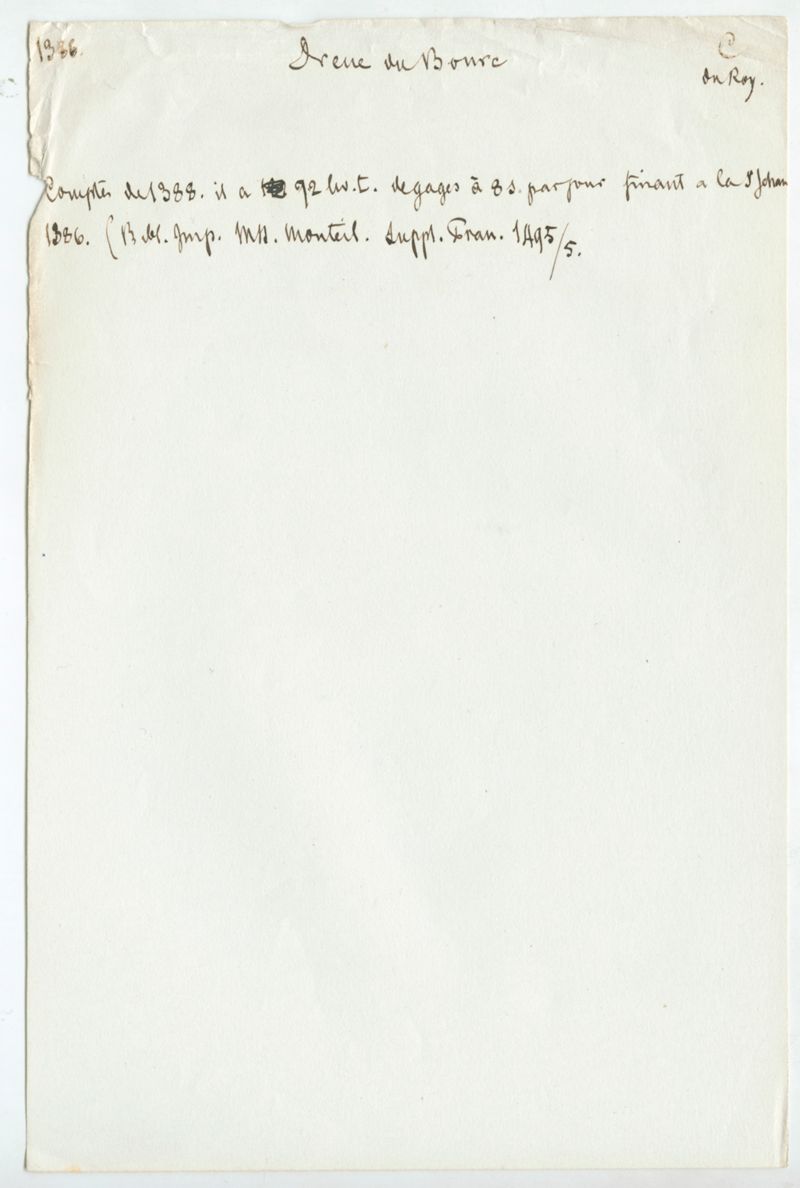 1386.
Dreue du Bourc
C
du Roy.
Comptes de 1388. il a 92 liv. t. de gages à 8 s. par jour finant a la S Jehan
1386. (Bibl. Imp. MSS. Monteil. Suppl. Fran. 1495/5.